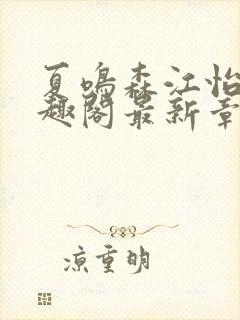 夏鸣森江怡
趣阁最新章
凉重明